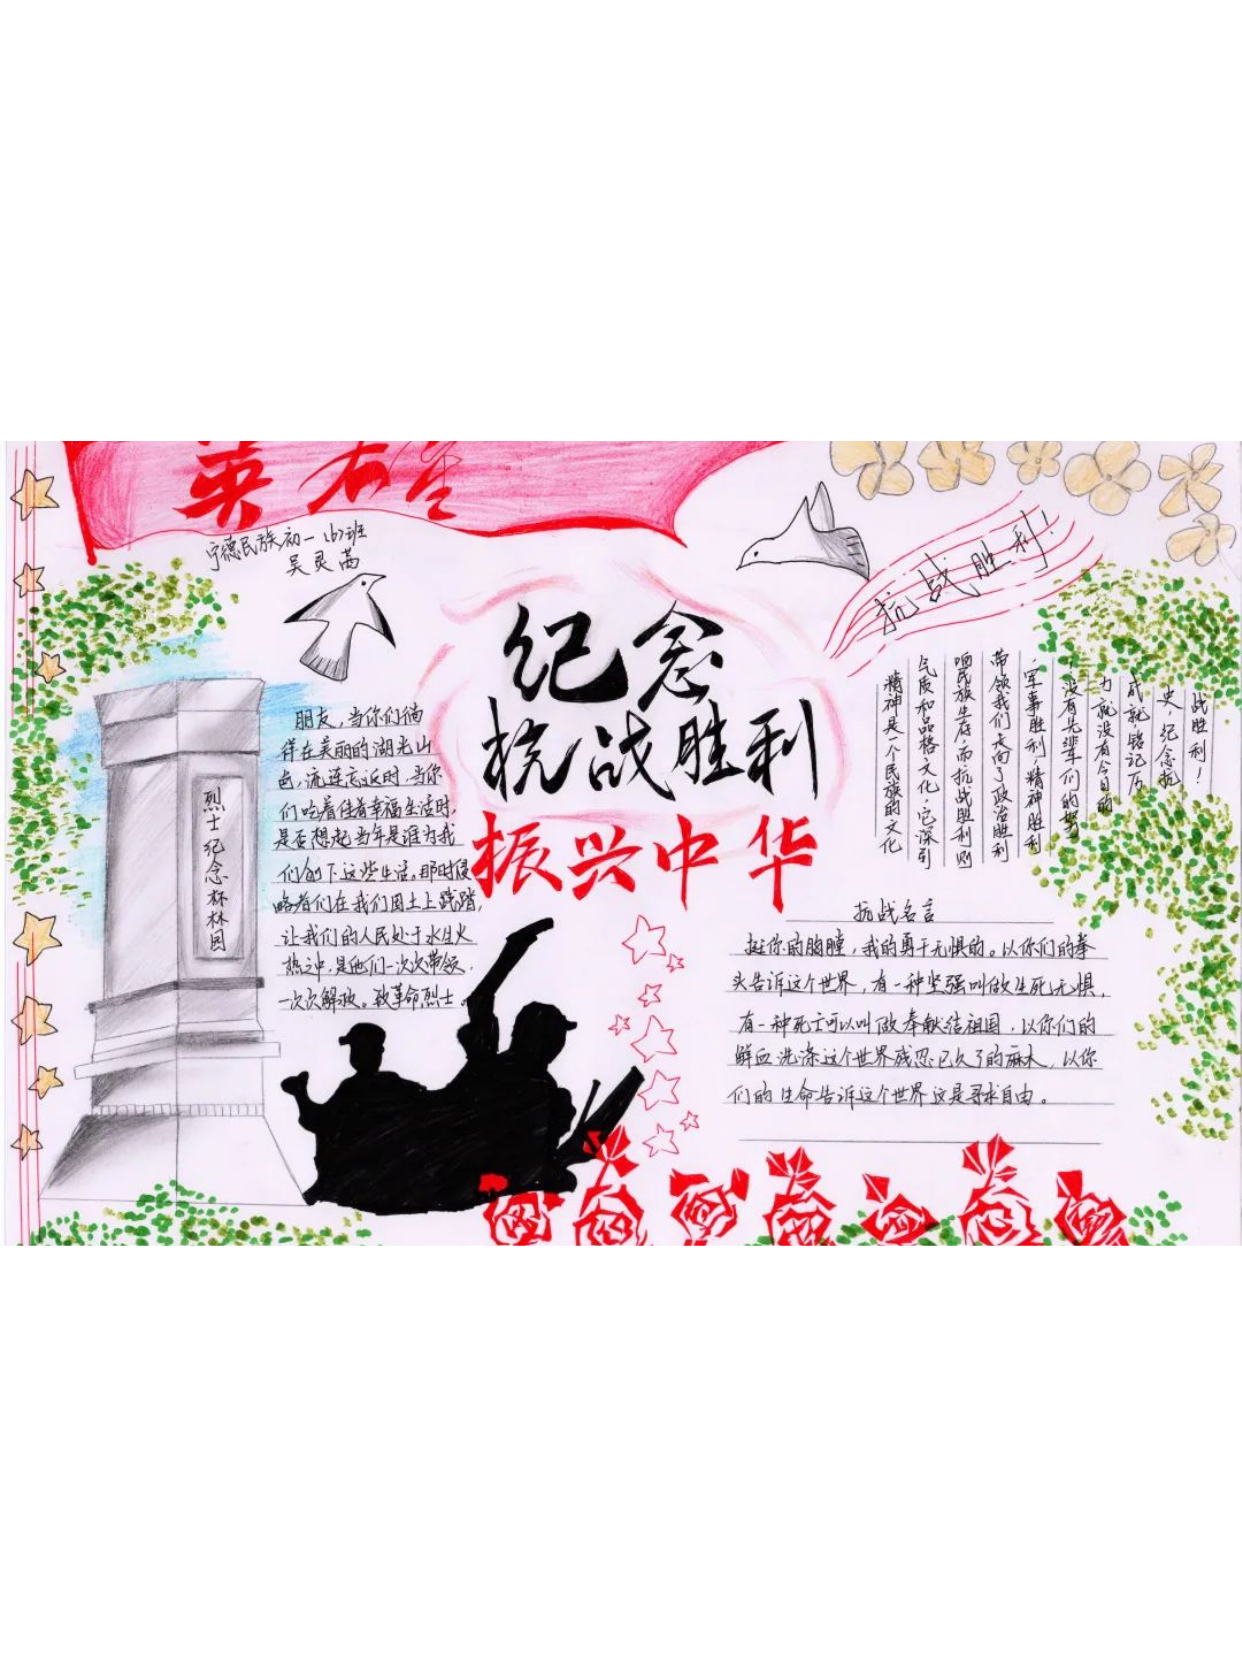 英雄
宁德民族初一(6)班
吴灵茜
纪念
抗战胜利
振兴中华
烈士纪念杯林园
朋友,当你们徜
徉在美丽的湖光山
色,流连忘返时,当你
们吃着住着幸福生活时,
是否想起当年是谁为我
们创下这些生活。那时侵
略者们在我们国土上践踏,
让我们的人民处于水生火
热之中,是他们一次次带领,
一次次解救。致革命烈士。
抗战胜利!
精神是一个民族的文化
气质和品格、文化,它深引
响民族生存,而抗战胜利则
带领我们走向了政治胜利
、军事胜利,精神胜利
,没有先辈们的努
力就没有今日的
成就,铭记历
史,纪念抗
战胜利!
抗战名言
挺你的胸膛,我的勇于无惧的。以你们的拳
头告诉这个世界,有一种坚强叫做生死无惧,
有一种死亡可以叫做奉献结祖国,以你们的
鲜血洗涤这个世界残忍已久了的麻木,以你
们的生命告诉这个世界这是寻求自由。